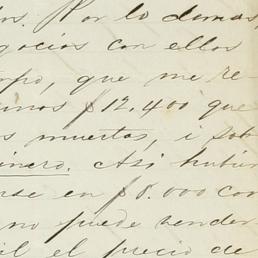 os. Por lo demas,
gocios con ellos
erpo, que me re-
mos $12,400 que
s muertas, i sob
inero. Así hubier
se en $8.000 con
no puede vender
il el precio de